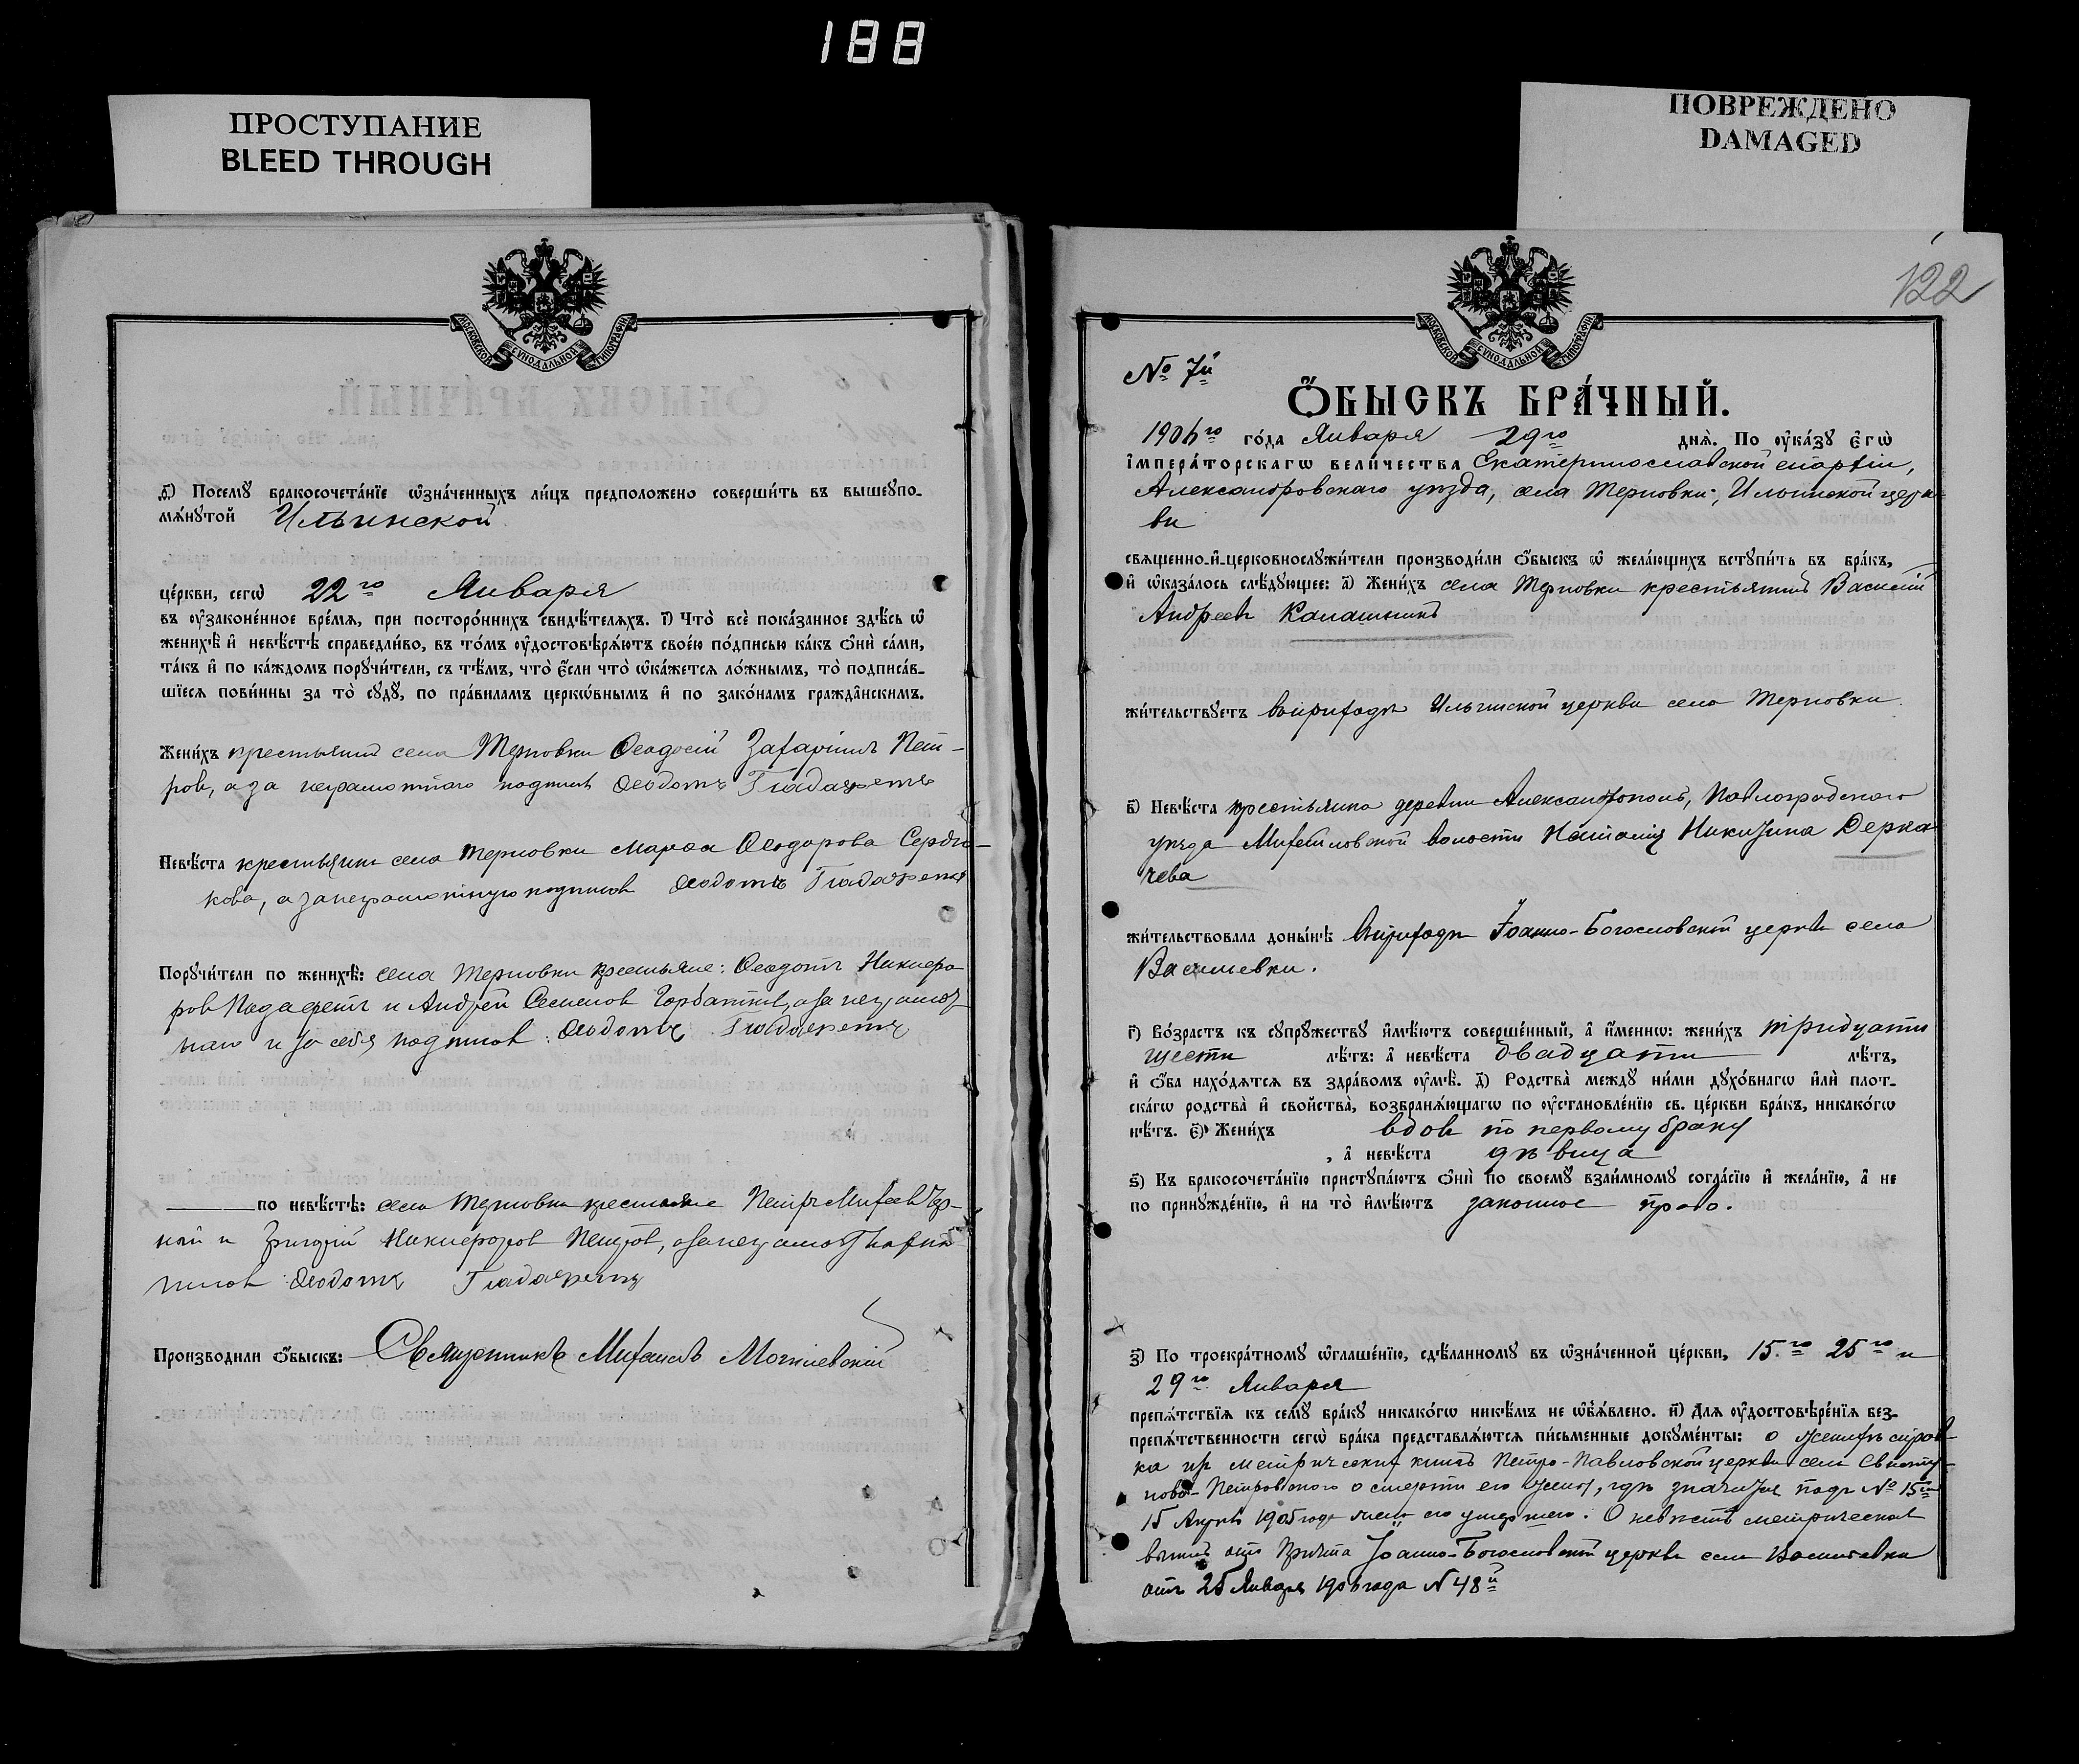 188
ПРОСТУПАНИЕ
BLEED THROUGH
ПОВРЕЖДЕНО
DAMAGED
МОСКОВСКОЙ СѴНОДАЛЬНОЙ ТИПОГРАФІИ
Посемꙋ бракосочета́нїе ѡ҆зна́ченныхъ ли́цъ предположено соверши́ть въ вышеꙋпо-
мѧ́нꙋтой Ильинской
це́ркви, сегѡ̀ 22го Января
въ ᲂу҆зако́ненное бре́мѧ, при посторо́ннихъ свидѣ́телѧхъ. ѳ҃) Что̀ всѐ пока́занное здѣ́сь ѡ҆
женихѣ̀ и҆ невѣ́стѣ справедли́во, въ то́мъ ᲂу҆достовѣрѧ́ютъ свое́ю по́дписью ка́къ ѻ҆нѝ са́ми,
та́къ и҆ по ка́ждомъ порꙋчи́тели, съ тѣ́мъ, что̀ є҆́сли что̀ ѡ҆ка́жетсѧ ло́жнымъ, то̀ подписа́в-
шїесѧ пови́нны за то̀ сꙋдꙋ̀, по пра́виламъ церкѡ́внымъ и҆ по зако́намъ гражда̂нскимъ.
Жени́хъ крестьянинъ села Терновки Ѳеодосій Захаріинъ Пет-
ровъ, а за неграмотнаго подписъ Ѳеодотъ
Невѣ́ста крестьянка села Терновки Марѳа Ѳеодорова Сердю-
кова, а за неграмотную подписалъ Ѳеодотъ
Порꙋчи́тели по женихѣ̀: села Терновки крестьяне: Ѳеодотъ Никифо
ровъ и Андрей Семеновъ Горбатковъ, а за неграмот-
наго и за себя подписалъ: Ѳеодотъ
по невѣ́стѣ: села Терновки крестьяне Петръ Михеевъ
и Григорій Никифоровъ Петровъ, а за неграмотныхъ под-
писалъ Ѳеодотъ
Производи́ли ѻ҆́быскъ: Священникъ Михаилъ Могилевскій
122
МОСКОВСКОЙ СѴНОДАЛЬНОЙ ТИПОГРАФІИ
№ 7й
Ѻ҆́БЫСКЪ БРА́ЧНЫЙ.
1906го го́да Января 29го днѧ̀. По ᲂу҆ка́зꙋ є҆гѡ̀
і҆мпера́торскагѡ вели́чества Екатеринославской епархіи,
Александровскаго уѣзда, села Терновки, Ильинской церк-
ви
свѧщенно-и҆-церковнослꙋжи́тели производи́ли ѻ҆́быскъ ѡ҆ жела́ющихъ встꙋпи́ть въ бра́къ,
и҆ ѡ҆каза́лось слѣ́дꙋющее: а҃) Жени́хъ села Терновки крестьянинъ Василій
Андреевъ Калашникъ
жи́тельствꙋетъ въ приходѣ Ильинской церкви села Терновки.
в҃) Невѣ́ста крестьянка деревни Александрополь, Павлоградскаго
уѣзда Михайловской волости Наталія Никитина Дерка-
чева
жи́тельствовала доны́нѣ въ приходѣ Іоанно-Богословской церкви села
Васильевки.
г҃) Во́зрастъ къ сꙋпрꙋ́жествꙋ и҆мѣ́ютъ соверше́нный, а҆ и҆́меннѡ: жени́хъ тридцати
шести лѣ́тъ: а҆ невѣ́ста двадцати лѣ́тъ,
и҆ ѻ҆́ба нахо́дѧтсѧ въ здра́вомъ ᲂу҆мѣ̀. д҃) Родства̀ междꙋ̀ ни́ми дꙋхо́внагѡ и҆лѝ плот-
ска́гѡ родства̀ и҆ свойства̀, возбранѧ́ющагѡ по ᲂу҆становле́нїю св. це́ркви бра́къ, никако́гѡ
нѣ́тъ. є҃) Жени́хъ вдовъ по первому браку
, а҆ невѣ́ста дѣвица
ѕ҃) Къ бракосочета́нїю пристꙋпа́ютъ ѻ҆нѝ по своемꙋ̀ взаи́мномꙋ согла́сїю и҆ жела́нїю, а҆ не
по принꙋжде́нїю, и҆ на то̀ и҆мѣ́ютъ законное право.
з҃) По троекра́тномꙋ ѡ҆глаше́нїю, сдѣ́ланномꙋ въ ѡ҆зна́ченной це́ркви, 15го 25го и
29го Января
препѧ́тствїѧ къ семꙋ̀ бра́кꙋ никако́гѡ никѣ́мъ не ѡ҆б̾ѧ́влено. и҃) Длѧ ᲂу҆достовѣре́нїѧ без-
препѧ́тственности сегѡ̀ бра́ка представлѧ́ютсѧ пи́сьменные докꙋме́нты: о женихѣ справ-
ка изъ метрическихъ книгъ Петро-Павловской церкви села
ново-Петровскаго о смерти его жены, гдѣ значится подъ № 15мъ
15 1905 года жена его умершею. О невѣстѣ метрическая
отъ причта Іоанно-Богословской церкви села Васильевки
отъ 25 Января 1906 года № 48й